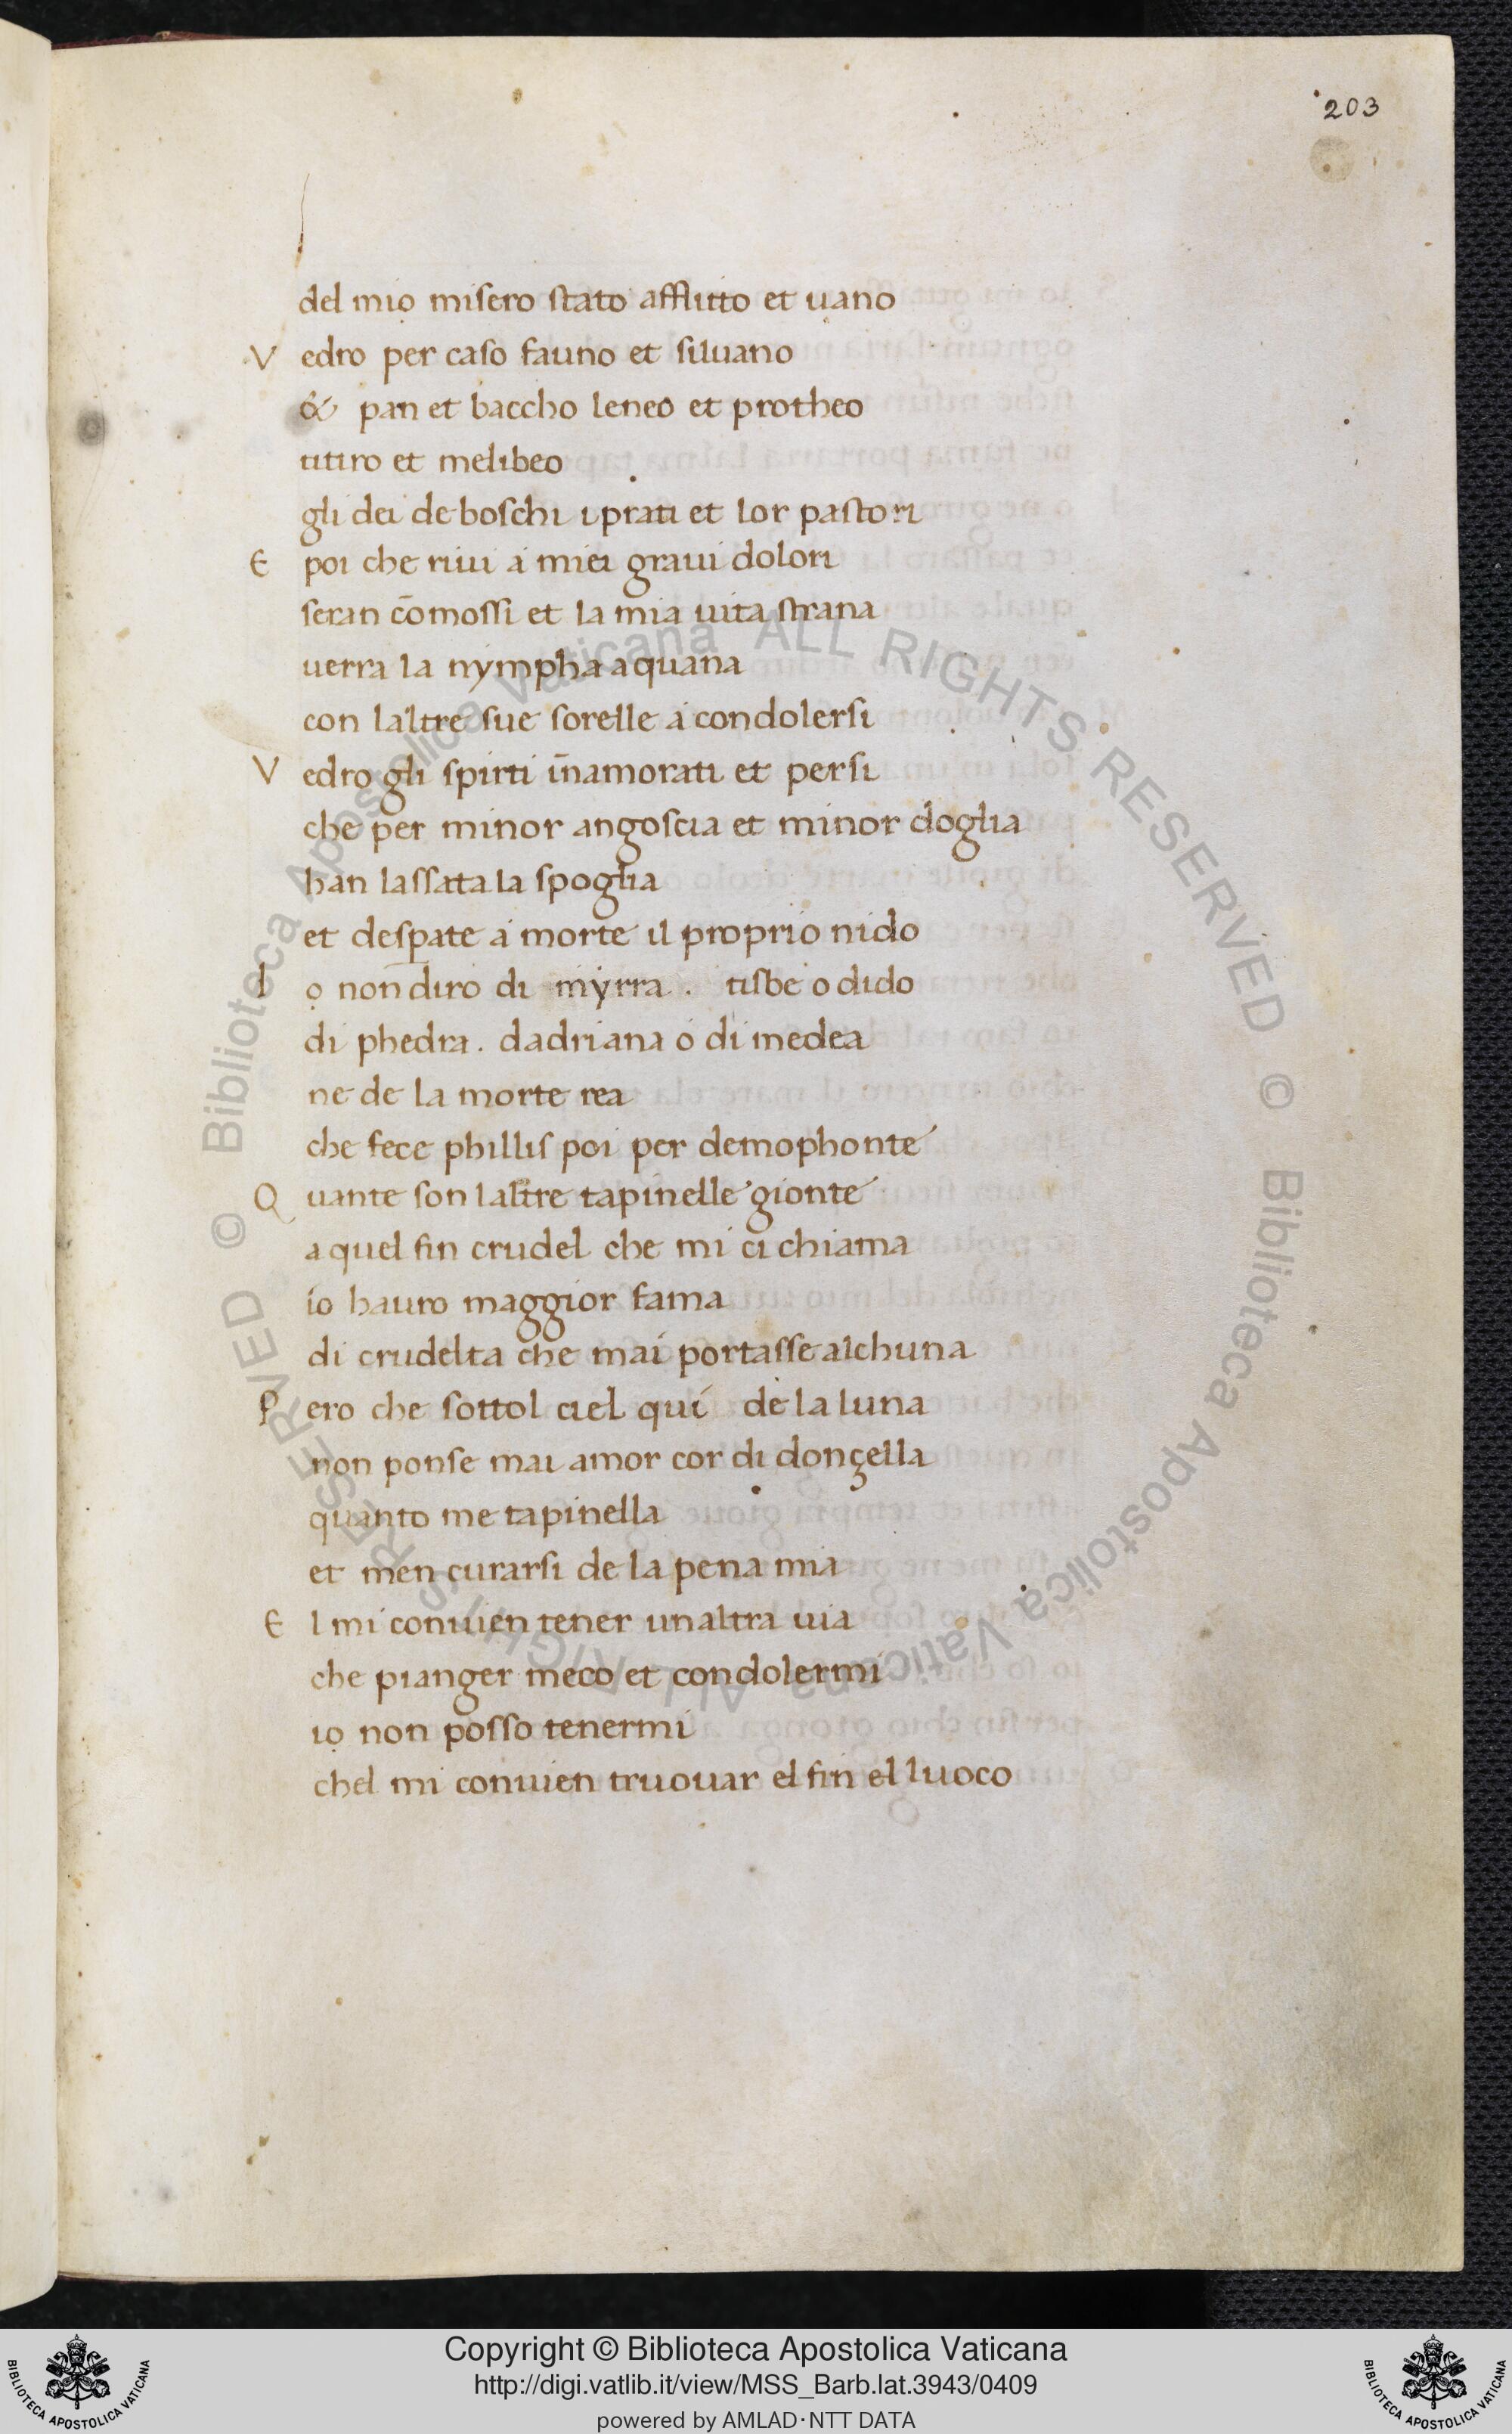 203
del mio misero stato afflitto et uano
V edro per caso fauno et siluano
& pan et baccho leneo et protheo
titiro et melibeo
gli dei de boschi i prati et lor pastori
E poi che riui a miei graui dolori
seran cōmossi et la mia uita strana
uerra la nympha aquana
con laltre sue sorelle a condolersi
V edro gli spirti īnamorati et persi
che per minor angoscia et minor doglia
han lassata la spoglia
et desꝑate a morte il proprio nido
I o non diro di myrra . tisbe o dido
di phedra . dadriana o di medea
ne de la morte rea
che fece phillis poi per demophonte
Q uante son laltre tapinelle gionte
a quel fin crudel che mi ci chiama
io hauro maggior fama
di crudelta che mai portasse alchuna
P ero che sottol ciel qui de la luna
non ponse mai amor cor di donçella
quanto me tapinella
et men curarsi de la pena mia
E l mi conuien tener unaltra uia
che pianger meco et condolermi
io non posso tenermi
chel mi conuien truouar el fin el luoco
© Biblioteca Apostolica Vaticana ALL RIGHTS RESERVED © Biblioteca Apostolica Vaticana ALL RIGHTS RESERVED
Copyright © Biblioteca Apostolica Vaticana
http://digi.vatlib.it/view/MSS_Barb.lat.3943/0409
powered by AMLAD·NTT DATA
BIBLIOTECA APOSTOLICA VATICANA
BIBLIOTECA APOSTOLICA VATICANA